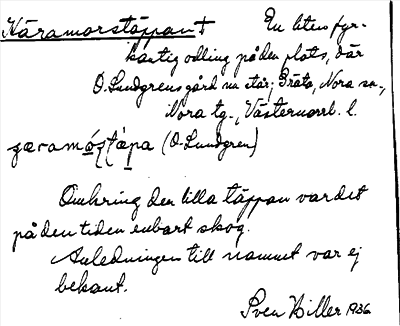 Häramorstäppan † En liten fyr-
kantig odling på den plats, där
O. Lundgrens gård nu står; Bräta, Nora sn.,
Nora tg., Västernorrl. l.
(O. Lundgren)
Omkring den lilla täppan var det
på den tiden enbart skog.
Anledningen till namnet var ej
bekant.
Sven Hiller 1936